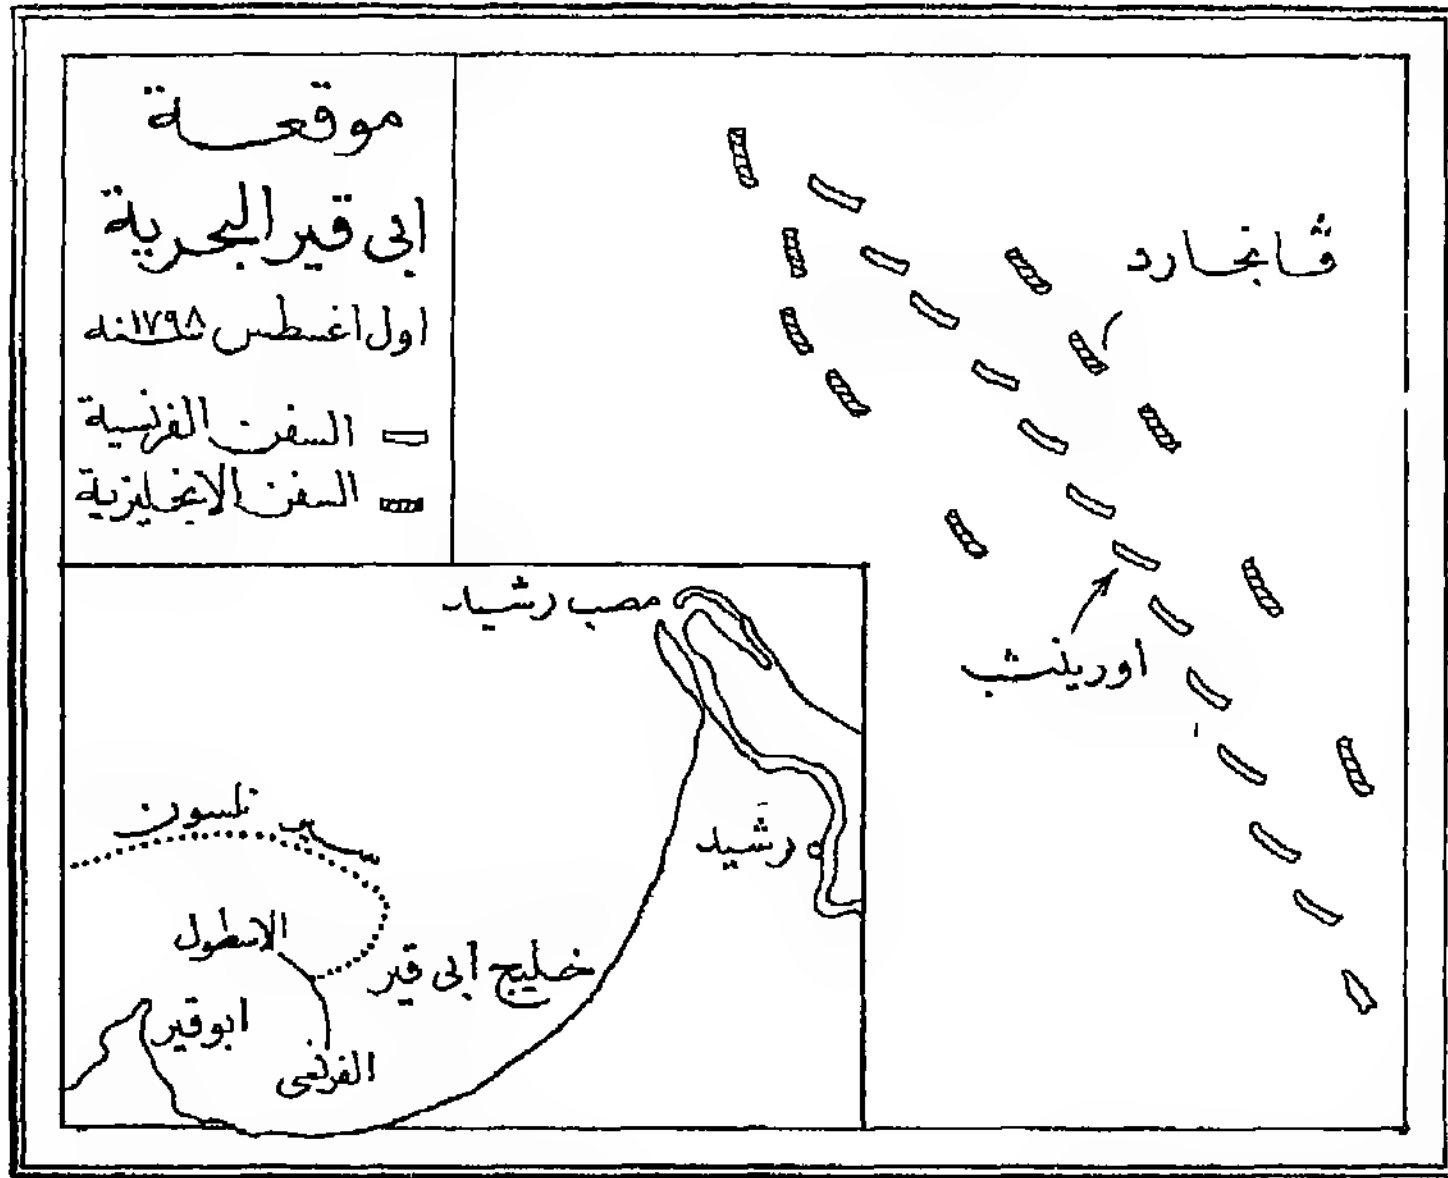 موقعة
ابى قير البحرية
اول اغسطس سنه ١٧٩٨
السفن الفرنسية
السفن الانجليزية
ڤانجارد
اورينت
مصب رشيد
رشيد
سير نلسون
الاسطول
الفرنسى
خليج ابى قير
ابوقير